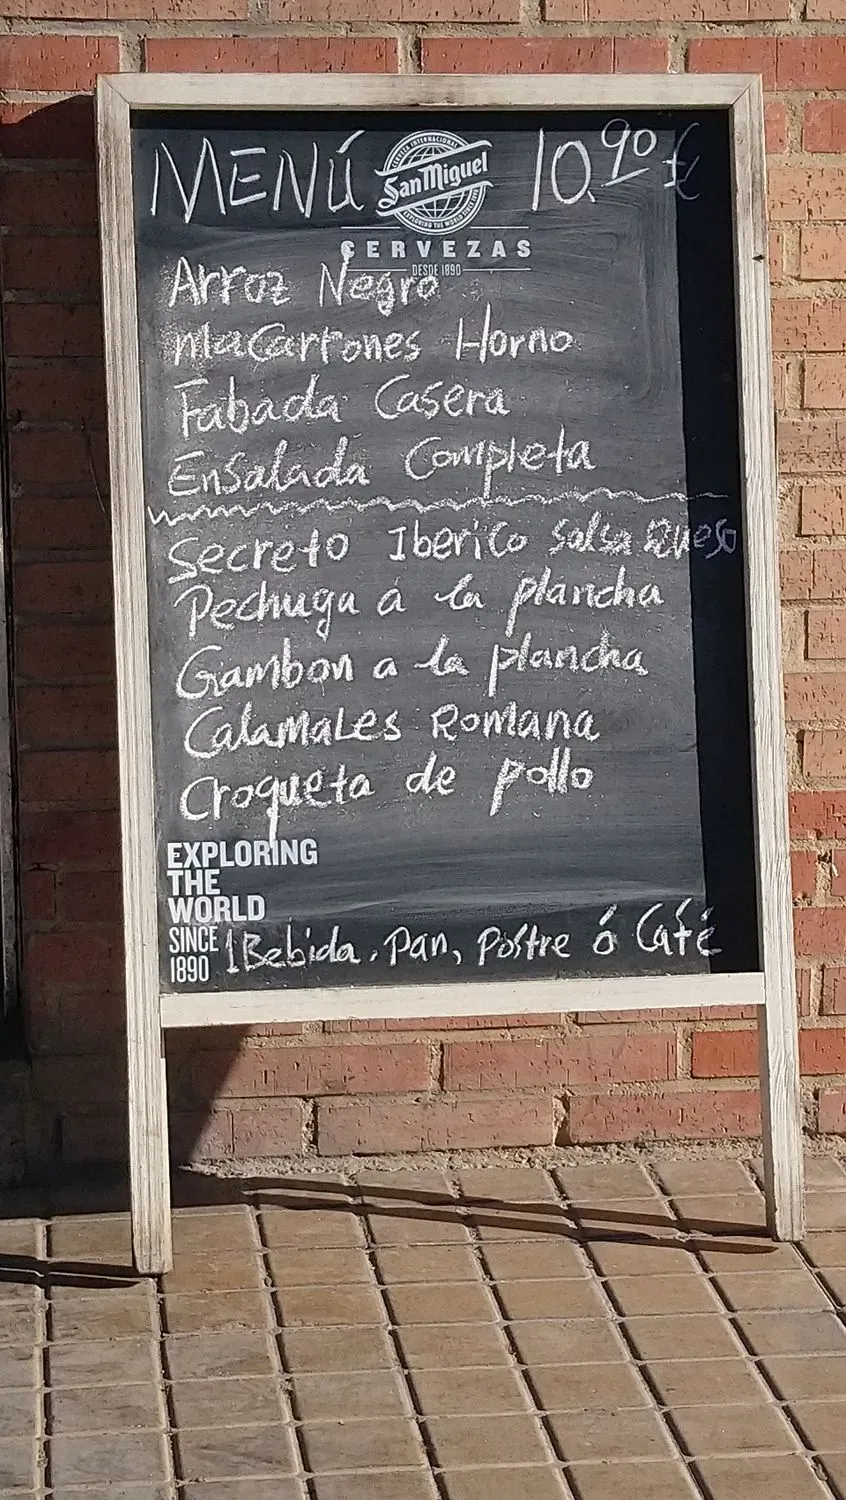 MENÚ 10.90 €
CERVEZA INTERNACIONAL
San Miguel
EXPLORING THE WORLD SINCE 1890
CERVEZAS
DESDE 1890
Arroz Negro
Macarrones Horno
Fabada Casera
Ensalada Completa
Secreto Iberico Salsa Queso
Pechuga a la plancha
Gambon a la plancha
Calamales Romana
Croqueta de pollo
EXPLORING
THE
WORLD
SINCE
1890
1 Bebida, Pan, Postre ó Café